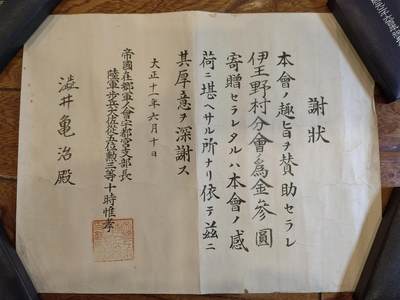 謝狀
本會ノ趣旨ヲ賛助セラレ
伊王野村分會ヘ爲金參圓
寄贈セラレタルハ本會ノ感
荷ニ堪ヘサル所ナリ依テ茲ニ
其厚意ヲ深謝ス
大正十一年六月十日
帝國在鄕軍人會宇都宮支部長
陸軍步兵大佐從五位勲三等十時惟孝
澁井亀治殿